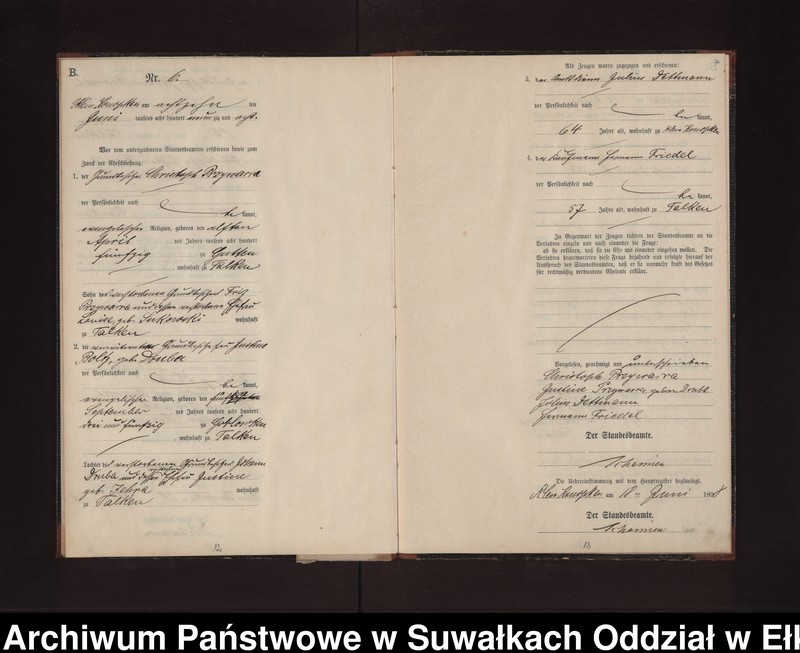 B.
Nr. 6.
Klein Konopken am achtzehn ten
Juni tausend acht hundert neunzig und acht.
Vor dem unterzeichneten Standesbeamten erschienen heute zum
Zweck der Eheschließung:
1. der Grundbesitzer Christoph
der Persönlichkeit nach
be kannt,
evangelischer Religion, geboren den elften
April des Jahres tausend acht hundert
fünfzig zu Gutten
wohnhaft zu Talken
Sohn des verstorbenen Grundbesitzers Fritz
und dessen verstorbene Ehefrau
Louise, geb. wohnhaft
zu Talken
2. die verwittwete Grundbesitzerfrau Justine
geb. Druba
der Persönlichkeit nach
be kannt,
evangelischer Religion, geboren den
September des Jahres tausend acht hundert
drei und fünfzig zu
wohnhaft zu Talken
Tochter des verstorbenen Grundbesitzers Johann
Druba und dessen Ehefrau Justine
geb. wohnhaft
zu Talken
12
7
Als Zeugen waren zugezogen und erschienen:
3. der Julius Dettmann
der Persönlichkeit nach
be kannt,
64 Jahre alt, wohnhaft zu Klein Konopken
4. der Kaufmann Hermann Friedel
der Persönlichkeit nach
be kannt,
57 Jahre alt, wohnhaft zu Talken
In Gegenwart der Zeugen richtete der Standesbeamte an die
Verlobten einzeln und nach einander die Frage:
ob sie erklären, daß sie die Ehe mit einander eingehen wollen. Die
Verlobten beantworteten diese Frage bejahend und erfolgte hierauf der
Ausspruch des Standesbeamten, daß er sie nunmehr kraft des Gesetzes
für rechtmäßig verbundene Eheleute erkläre.
Vorgelesen, genehmigt und unterschrieben
Christoph
Justine geboren
Julius Dettmann
Hermann Friedel
Der Standesbeamte.
Die Uebereinstimmung mit dem Hauptregister beglaubigt.
Klein Konopken am 18ten Juni 1898
Der Standesbeamte.
13
Archiwum Państwowe w Suwałkach Oddział w Ełk